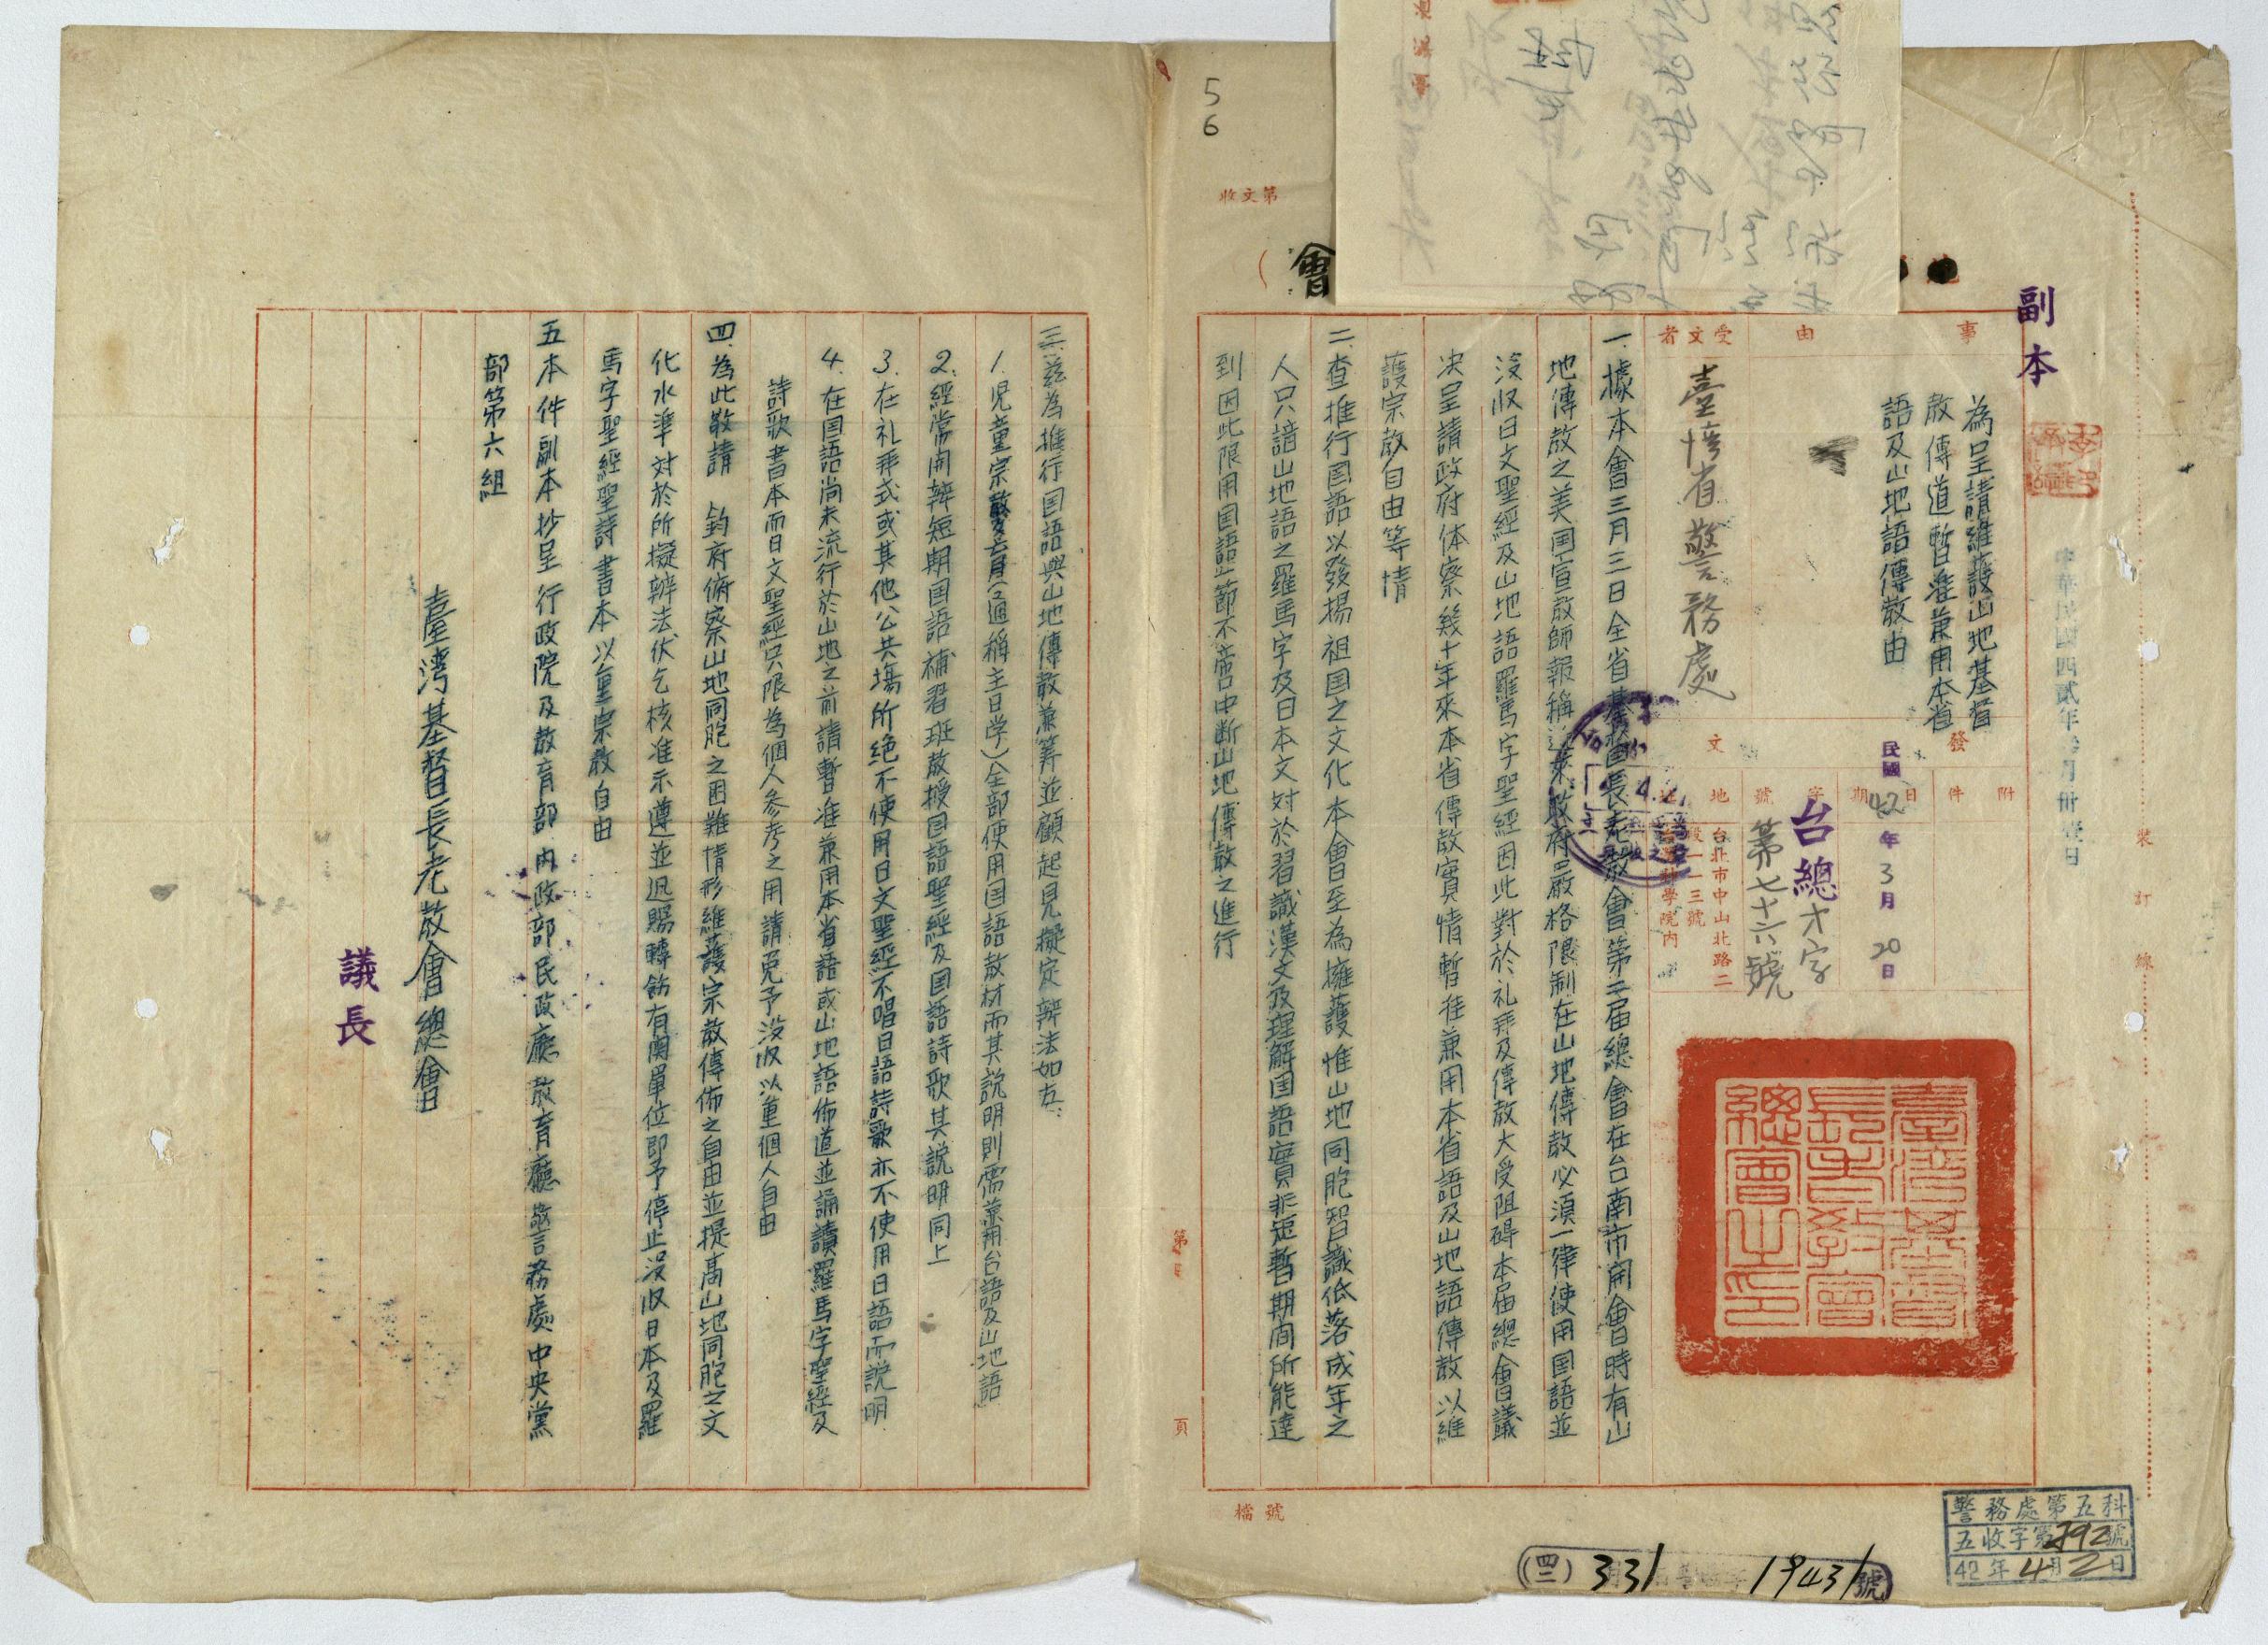 副本
中華民國四貳年參月卅壹日
事由
為呈請維護山地基督
教傳道暫准兼用本省
語及山地語傳教由
受文者
臺灣省警務處
附件
發文
日期
民國42年3月20日
字號
台總才字
第七十六號
地址
台北市中山北路二
段一一三號
一、據本會三月三日全省基督長老教會第二屆總會在台南市開會日時有山
地傳教之美国宣教師報稱近來政府嚴格限制在山地傳教必須一律使用国語並
沒收日文聖經及山地語羅馬字聖經因此對於礼拜及傳教大受阻碍本屆總會議
決呈請政府体察幾十年來本省傳教實情暫准兼用本省語及山地語傳教以維
護宗教自由等情
二、查推行国語以發揚祖国之文化本會至為擁護惟山地同胞智識低落成年之
人只諳山地語之羅馬字及日本文对於習識漢文及理解国語實非短暫期间所能達
到因此限用国語一節不啻中断山地傳教之進行
三、茲為推行国語與山地傳教兼籌並顧起見擬定辦法如左:
1.児童宗教教育(通稱主日学)全部使用国語教材而其説明則需兼用台語及山地語
2.經常開辦短期国語補習班教授国語聖經及国語詩歌其説明同上
3.在礼拜式或其他公共場所絶不使用日文聖經不唱日語詩歌亦不使用日語而説明
4.在国語尚未流行於山地之前請暫准兼用本省語或山地語佈道並誦讀羅馬字聖經及
詩歌書本而日文聖經只限為個人参考之用請免予没收以重個人自由
四、為此敬請 鈞府俯察山地同胞之困難情形維護宗教傳佈之自由並提高山地同胞之文
化水準对於所擬辦法伏乞核准示遵並迅賜轉飭有関單位即予停止没收日本及羅
馬字聖經聖詩書本以重宗教自由
五本件副本抄呈行政院及教育部内政部民政廳教育廳警務處中央黨
部第六組
臺灣基督長老教會總會
議長
臺灣基督
長老教會
總會之印
第 頁
檔號
收文第
會
56
裝訂線
警務處第五科
五收字第792號
42年4月2日
(四二) 331 19431號